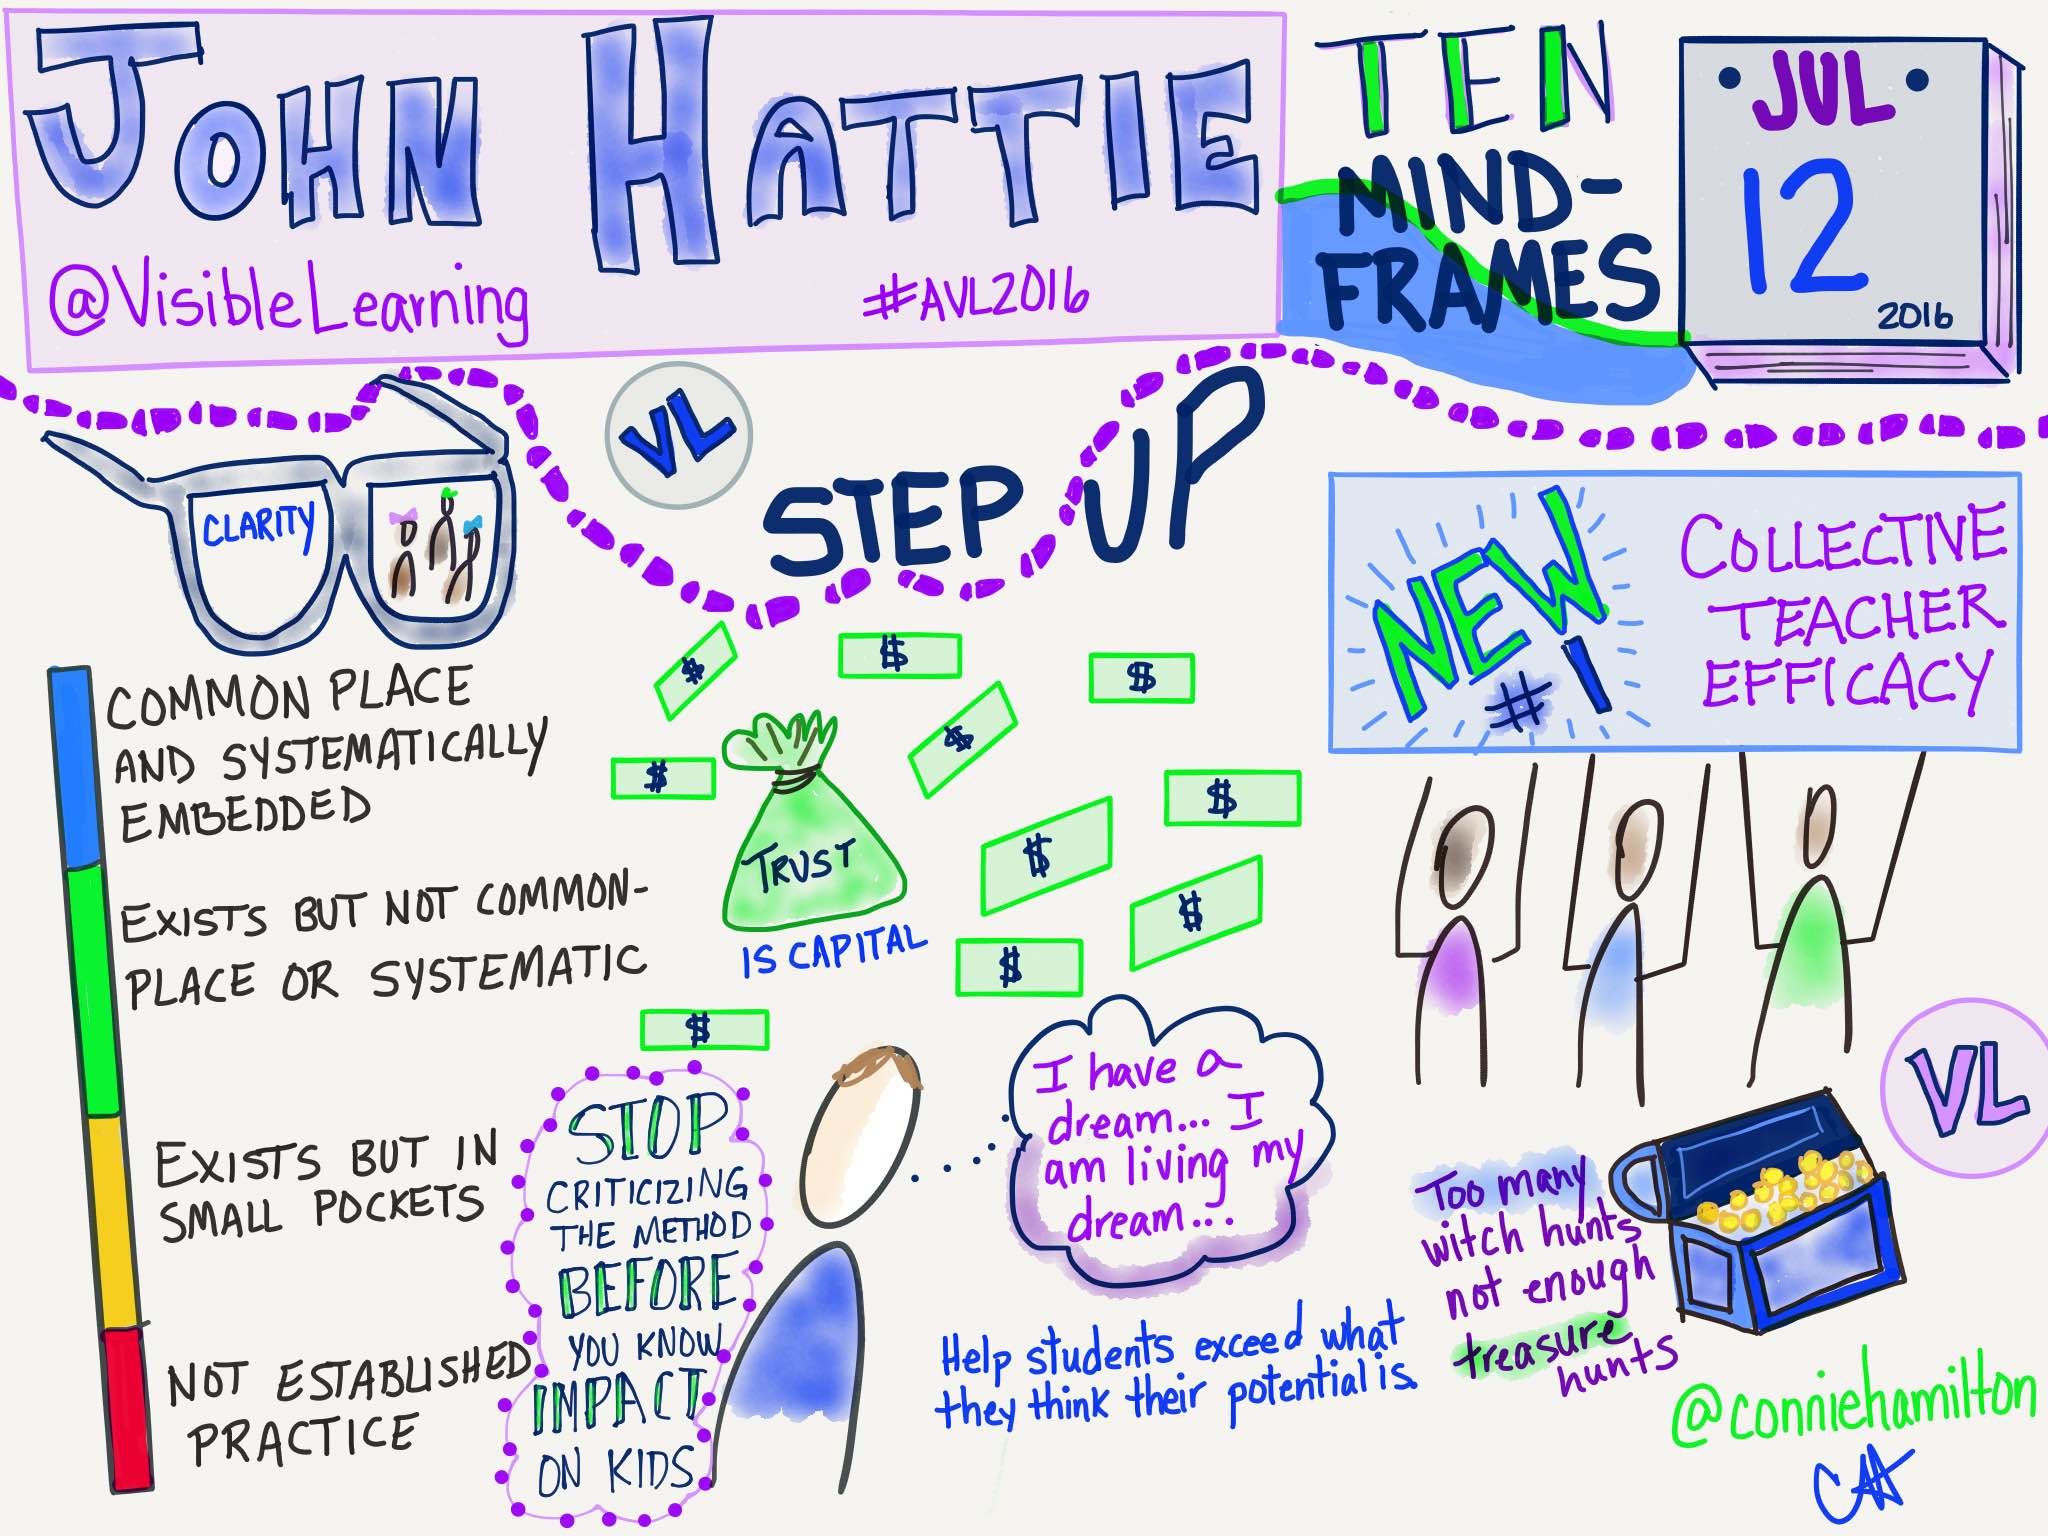 JOHN HATTIE
@VisibleLearning
#AVL2016
TEN
MIND-
FRAMES
JUL
12
2016
CLARITY
VL
STEP UP
NEW
#1
COLLECTIVE
TEACHER
EFFICACY
COMMON PLACE
AND SYSTEMATICALLY
EMBEDDED
EXISTS BUT NOT COMMON-
PLACE OR SYSTEMATIC
EXISTS BUT IN
SMALL POCKETS
NOT ESTABLISHED
PRACTICE
$
$
$
$
$
$
$
$
$
$
TRUST
IS CAPITAL
STOP
CRITICIZING
THE METHOD
BEFORE
YOU KNOW
IMPACT
ON KIDS
I have a
dream... I
am living my
dream...
Help students exceed what
they think their potential is.
Too many
witch hunts
not enough
treasure
hunts
VL
@conniehamilton